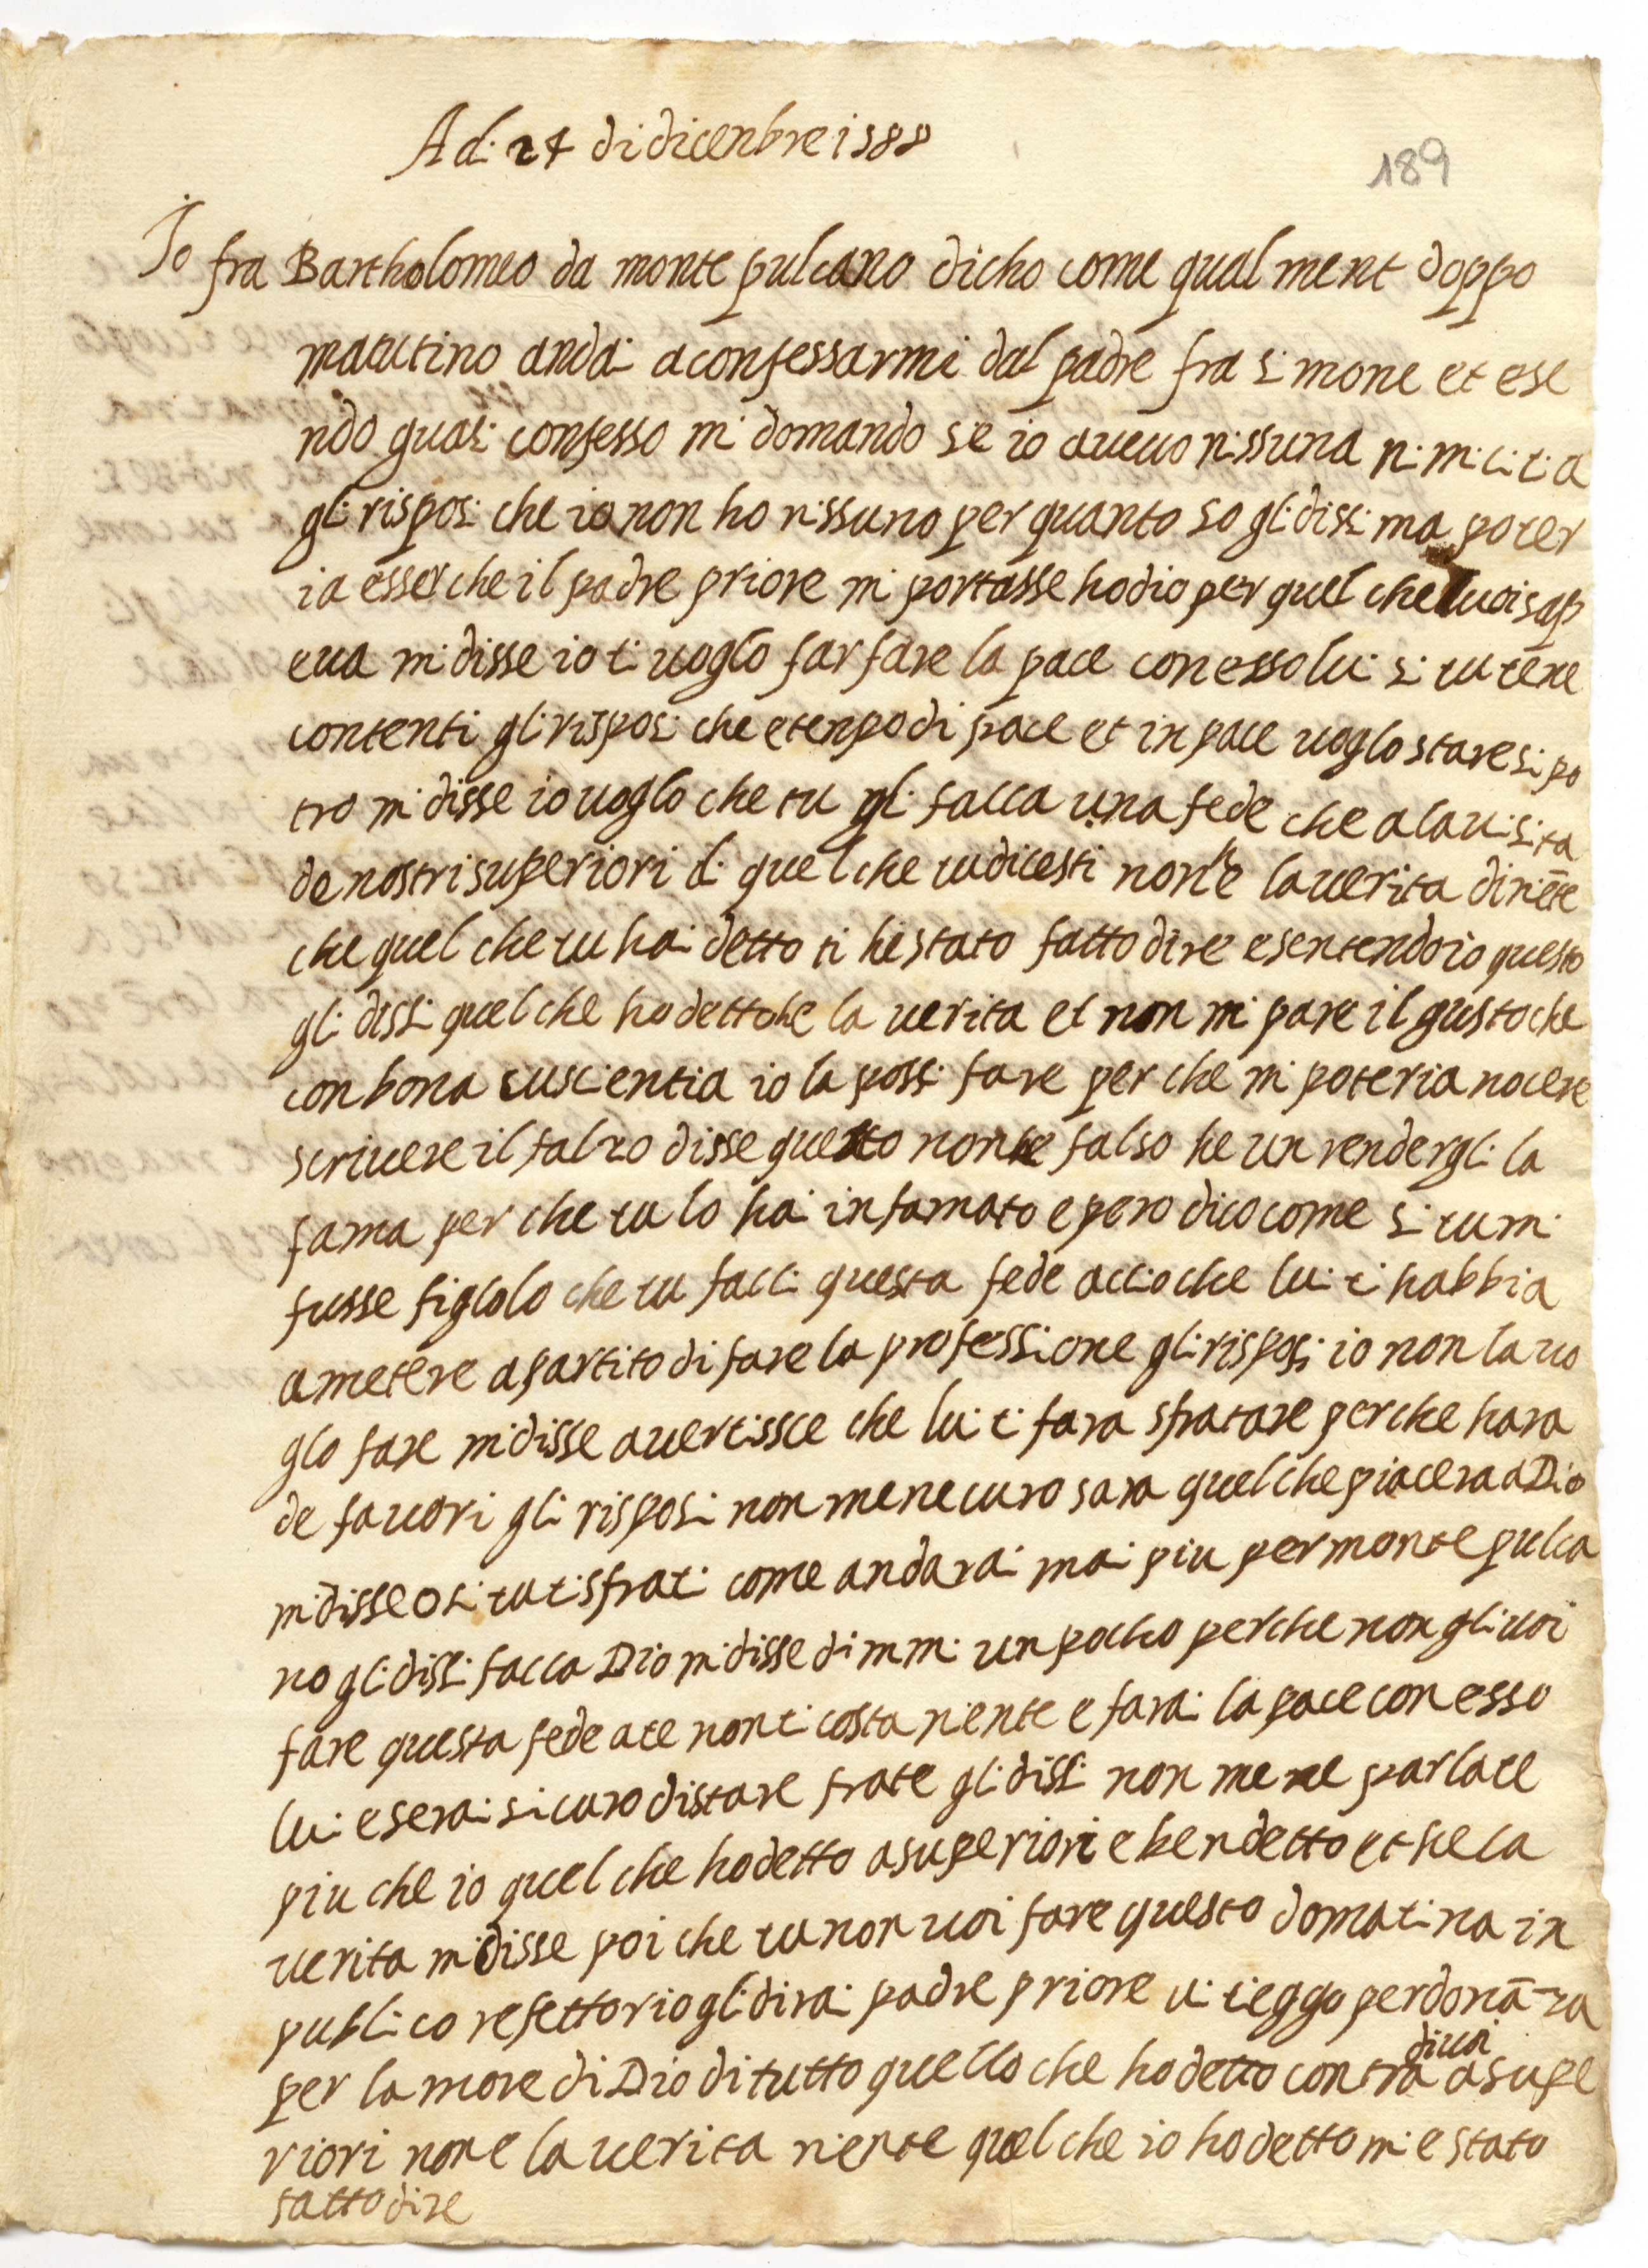 Ad: 24 di dicenbre 1588
189
Io fra Bartholomeo da monte pulcano dicho come qual ment doppo
matutino andai a confessarmi dal padre fra simone et ese
ndo quasi confesso mi domando se io aueuo nissuna nimicitia
gli risposi che io non ho nissuno per quanto so gli dissi ma poter
ia esser che il padre priore mi portasse hodio per quel che lui sap
eua mi disse io ti uoglo far fare la pace con esso lui si tu tene
contenti gli risposi che e tenpo di pace et in pace uoglo stare si po
tro mi disse io uoglo che tu gli facca una fede che a la uisita
de nostri superiori di quel che tu dicesti non e la uerita di niēte
che quel che tu hai detto ti he stato fatto dire e sentendo io questo
gli dissi quel che ho detto he la uerita et non mi pare il gusto che
con bona cuscientia io la possi fare per che mi poteria nocere
scriuere il falzo disse questo non he falso he un rendergli la
fama per che tu lo hai infamato e pero dico come si tu mi
fusse figlolo che tu facci questa fede accio che lui ti habbia
a metere a partito di fare la professione gli risposi io non la uo
glo fare mi disse auertissce che lui ti fara sfratare perche hara
de fauori gli risposi non me ne curo sara quel che piacera a Dio
mi disse o si tu ti sfrati come andarai mai piu per monte pulca
no gli dissi facca Dio mi disse dimmi un pocho perche non gli uoi
fare questa fede a te non ti costa niente e farai la pace con esso
lui e serai sicuro di stare frate gli dissi non me ne parlate
piu che io quel che ho detto a superiori e ben detto et he la
uerita mi disse poi che tu non uoi fare questo domatina in
publico refettorio gli dirai padre priore ui cieggo perdonā za
per lamore di Dio di tutto quello che ho detto contra di uoi a supe
riori non e la uerita niente quel che io ho detto mi e stato
fatto dire